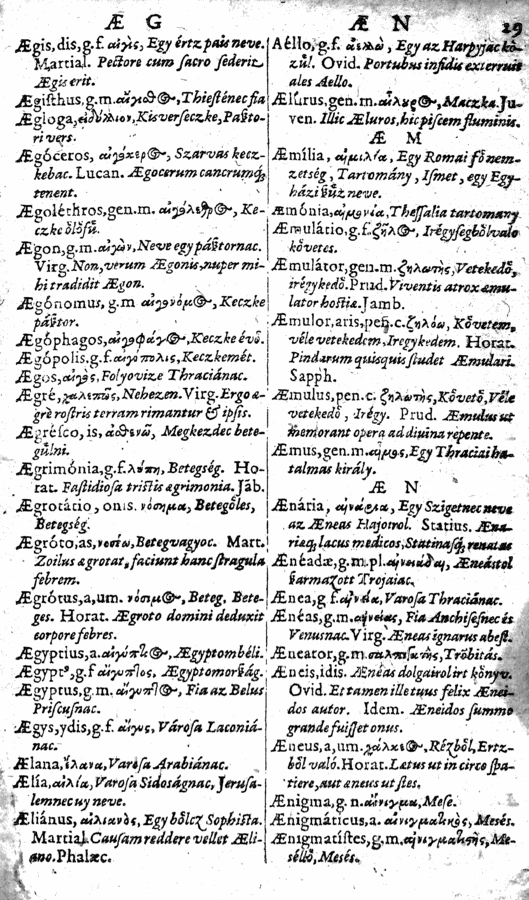 Æ G
Ægis, dis, g. f. αἰγὶς, Egy értz pais neve.
Martial. Pectore cum sacro sederit
Ægis erit.
Ægisthus, g. m. Thiesténec fia
Ægloga, εἰδύλλιον, Kis verseczke, Paſto-
ri vers.
Ægóceros, αἰγόκερος, Szarvas kecz-
kebac. Lucan. Ægocerum cancrumq́;
tenent.
Ægoléthros, gen. m. αἰγόλεθρος, Ke-
czke őlőſű.
Ægon, g. m. αἰγὼν, Neve egy páſtornac.
Virg. Non, verum Ægonis, nuper mi-
hi tradidit Ægon.
Ægónomus, g. m αἰγονόμος, Keczke
páſtor.
Ægóphagos, αἰγοφάγος, Keczke évő.
Ægópolis, g. f. αἰγόπολις, Keczkemét.
Ægos, αἰγὸς, Folyovize Thraciánac.
Ægré, χαλεπῶς, Nehezen. Virg. Ergo æ-
grè rostris terram rimantur & ipsis.
Ægrésco, is, ἀσθενῶ, Megkezdec bete-
gűlni.
Ægrimónia, g. f. λύπη, Betegség. Ho-
rat. Fastidiosa tristis ægrimonia. Jãb.
Ægrotátio, onis. νόσημα, Betegőles,
Betegség.
Ægróto, as, νοσέω, Beteg vagyoc. Mart.
Zoilus ægrotat, faciunt hanc stragula
febrem.
Ægrótus, a, um. Beteg, Bete-
ges. Horat. Ægroto domini deduxit
corpore febres.
Ægyptius, a. αἰγύπτιος, Ægyptombéli.
Ægyptꝰ, g. f αἰγυπτος, Ægyptomorſág.
Ægyptus, g. m. αἴγυπτος, Fia az Belus
Priscusnac.
Ægys, ydis, g. f. αἴγυς, Városa Laconiá-
nac.
Ælana, ἔλανα, Varosa Arabiánac.
Ælía, αἰλία, Varosa Sidoságnac, Jerusa-
lemnec uy neve.
Æliánus, αἰλιανὸς, Egy bőlcz Sophista.
Martial. Causam reddere vellet Æli-
ano. Phalæc.
Æ N
29
Aéllo, g. f. ἀελλὼ, Egy az Harpyjac kő-
zűl. Ovid. Portubus infidis exterruit
ales Aello.
Ælurus, gen. m. αἴλουρος, Maczka. Ju-
ven. Illic Æluros, hic piscem fluminis.
Æ M
Æmília, αἰμιλία, Egy Romai fő nem-
zetség, Tartomány, Ismet, egy Egy-
házi ſűz neve.
Æmónia, αἱμονία, Thessalia tartomany
Æmulátio, g. f. ζῆλος, Irégységből való
kővetes.
Æmulátor, gen. m. ζηλωτὴς, Vetekedő,
irégykedő. Prud. Viventis atrox æmu-
lator hostiæ. Jamb.
Æmulor, aris, peñ. c. ζηλόω, Kővetem,
véle vetekedem, Iregykedem. Horat.
Pindarum quisquis studet Æmulari.
Sapph.
Æmulus, pen. c. ζηλωτὴς, Kővető, Véle
vetekedő, Irégy. Prud. Æmulus ut
memorant opera ad divina repente.
Æmus, gen. m. αἷμος, Egy Thraciai ha-
talmas király.
Æ N
Ænária, αἰνάρια, Egy Szigetnec neve
az Æneas Hajotrol. Statius. Æna-
riæq́; lacus medicos, Statinasq́; renatas
Æneádæ, g. m. pl. αἰνειάδαι, Æneástol
ſarmazott Trojaiac.
Ænea, g f. αἰνεία, Varosa Thraciánac.
Ænéas, g. m. αἰνείας, Fia Anchisesnec és
Venusnac. Virg. Æneas ignarus abest.
Æneator, g. m. σαλπιστὴς, Trőbitás.
Æneis, idis. Æneás dolgairol irt kőnyv.
Ovid. Et tamen ille tuus felix Ænei-
dos autor. Idem. Æneidos summo
grande fuisset onus.
Æneus, a, um. χάλκεος, Rézből, Ertz-
ből való. Horat. Lætus ut in circo spa-
tiere, aut æneus ut stes.
Ænigma, g. n. αἴνιγμα, Mese.
Ænigmáticus, a. αἰνιγματικὸς, Mesés.
Ænigmatístes, g. m. αἰνιγματιστὴς, Me-
séllő, Mesés.